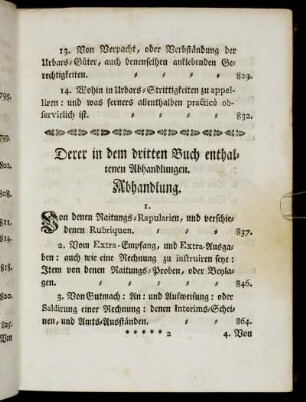 13. Von Verpacht, oder Verbständung der
Urbars-Güter, auch denenselben anklebenden Ge-
rechtigkeiten. 829.
14. Wohin in Urbars-Strittigkeiten zu appel-
liren: und was ferners allenthalben practicè ob-
servirlich ist. 832.
Derer in dem dritten Buch enthal-
tenen Abhandlungen.
Abhandlung.
1.
Von denen Raitungs-Rapularien, und verschie-
denen Rubriquen. 837.
2. Vom Extra-Empfang, und Extra-Ausga-
ben: auch wie eine Rechnung zu instruiren seye:
Item von denen Raitungs-Proben, oder Beyla-
gen. 846.
3. Von Gutmach: An: und Aufweisung: oder
Saldirung einer Rechnung: denen Interims-Schei-
nen, und Amts-Ausständen. 864.
***** 2 4. Von
795.
825.
Von